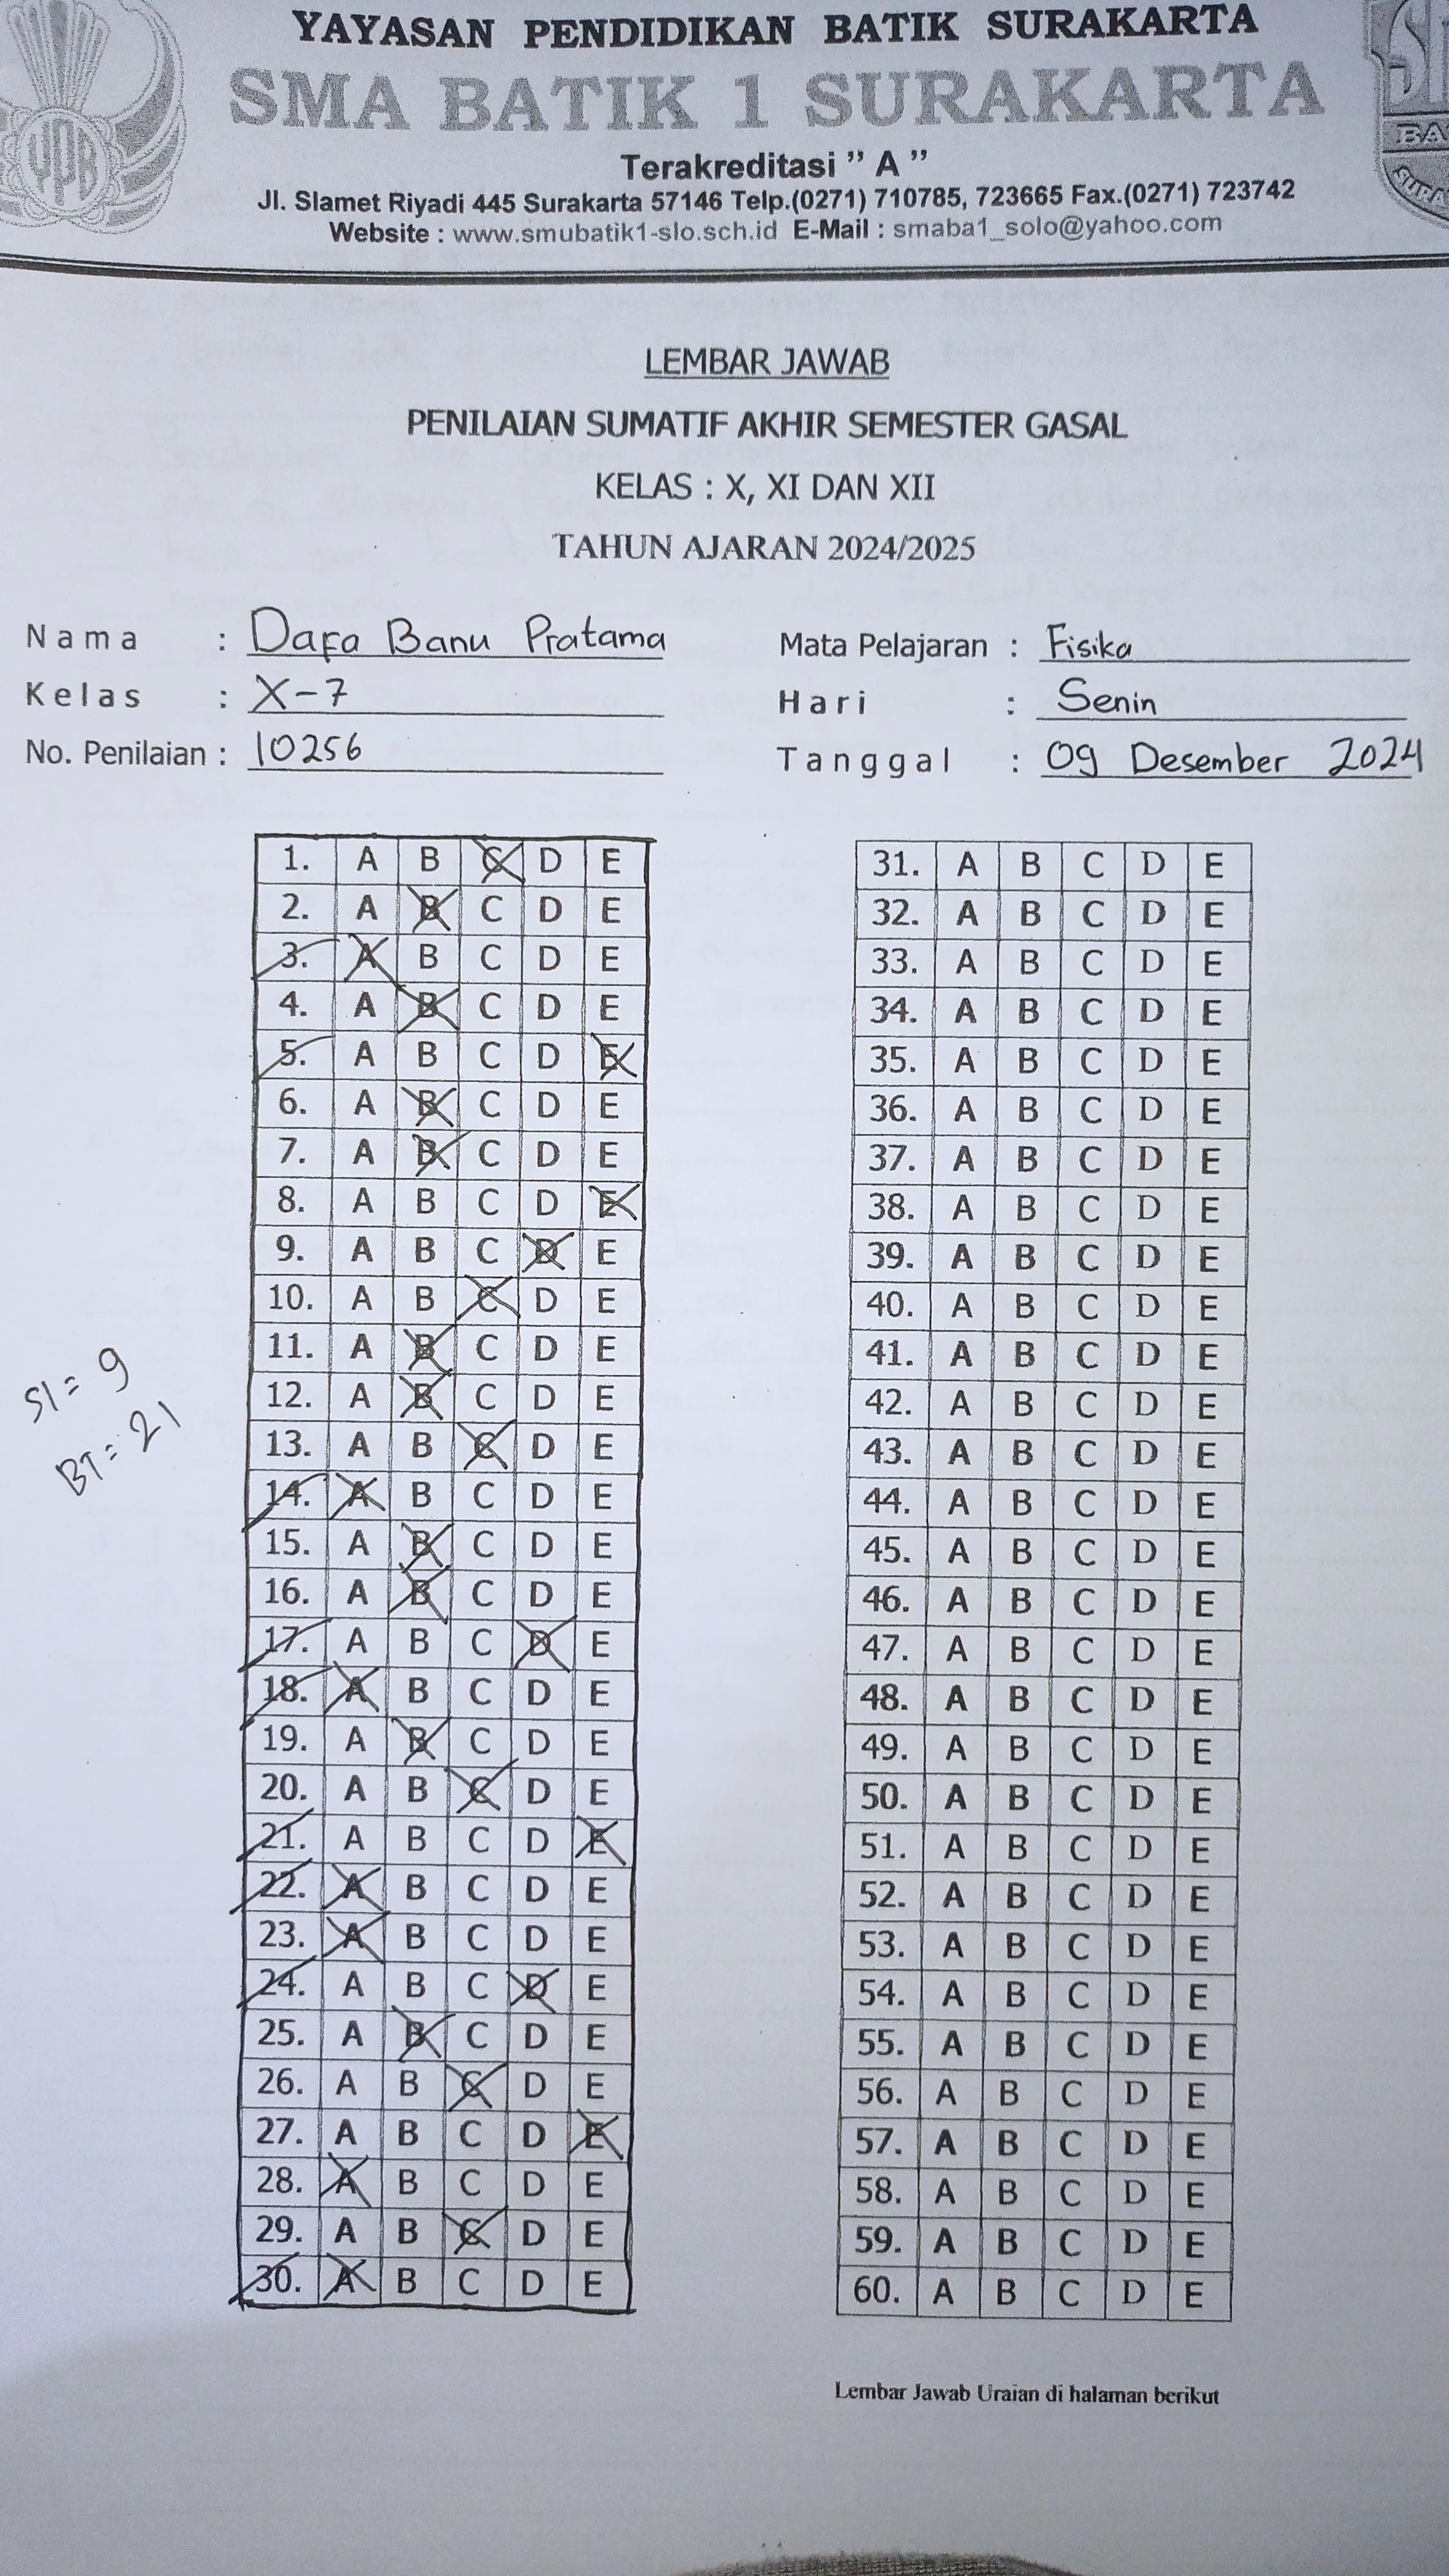 YAYASAN PENDIDIKAN BATIK SURAKARTA
SMA BATIK 1 SURAKARTA
Terakreditasi ” A ”
Jl. Slamet Riyadi 445 Surakarta 57146 Telp.(0271) 710785, 723665 Fax.(0271) 723742
Website : www.smubatik1-slo.sch.id E-Mail : smaba1_solo@yahoo.com
YPB
LEMBAR JAWAB
PENILAIAN SUMATIF AKHIR SEMESTER GASAL
KELAS : X, XI DAN XII
TAHUN AJARAN 2024/2025
Nama : Dafa Banu Pratama
Kelas : X-7
No. Penilaian : 10256
Mata Pelajaran : Fisika
Hari : Senin
Tanggal : 09 Desember 2024
1. A B C D E
2. A B C D E
3. A B C D E
4. A B C D E
5. A B C D E
6. A B C D E
7. A B C D E
8. A B C D E
9. A B C D E
10. A B C D E
11. A B C D E
12. A B C D E
13. A B C D E
14. A B C D E
15. A B C D E
16. A B C D E
17. A B C D E
18. A B C D E
19. A B C D E
20. A B C D E
21. A B C D E
22. A B C D E
23. A B C D E
24. A B C D E
25. A B C D E
26. A B C D E
27. A B C D E
28. A B C D E
29. A B C D E
30. A B C D E
SI = 9
BT = 21
31. A B C D E
32. A B C D E
33. A B C D E
34. A B C D E
35. A B C D E
36. A B C D E
37. A B C D E
38. A B C D E
39. A B C D E
40. A B C D E
41. A B C D E
42. A B C D E
43. A B C D E
44. A B C D E
45. A B C D E
46. A B C D E
47. A B C D E
48. A B C D E
49. A B C D E
50. A B C D E
51. A B C D E
52. A B C D E
53. A B C D E
54. A B C D E
55. A B C D E
56. A B C D E
57. A B C D E
58. A B C D E
59. A B C D E
60. A B C D E
Lembar Jawab Uraian di halaman berikut